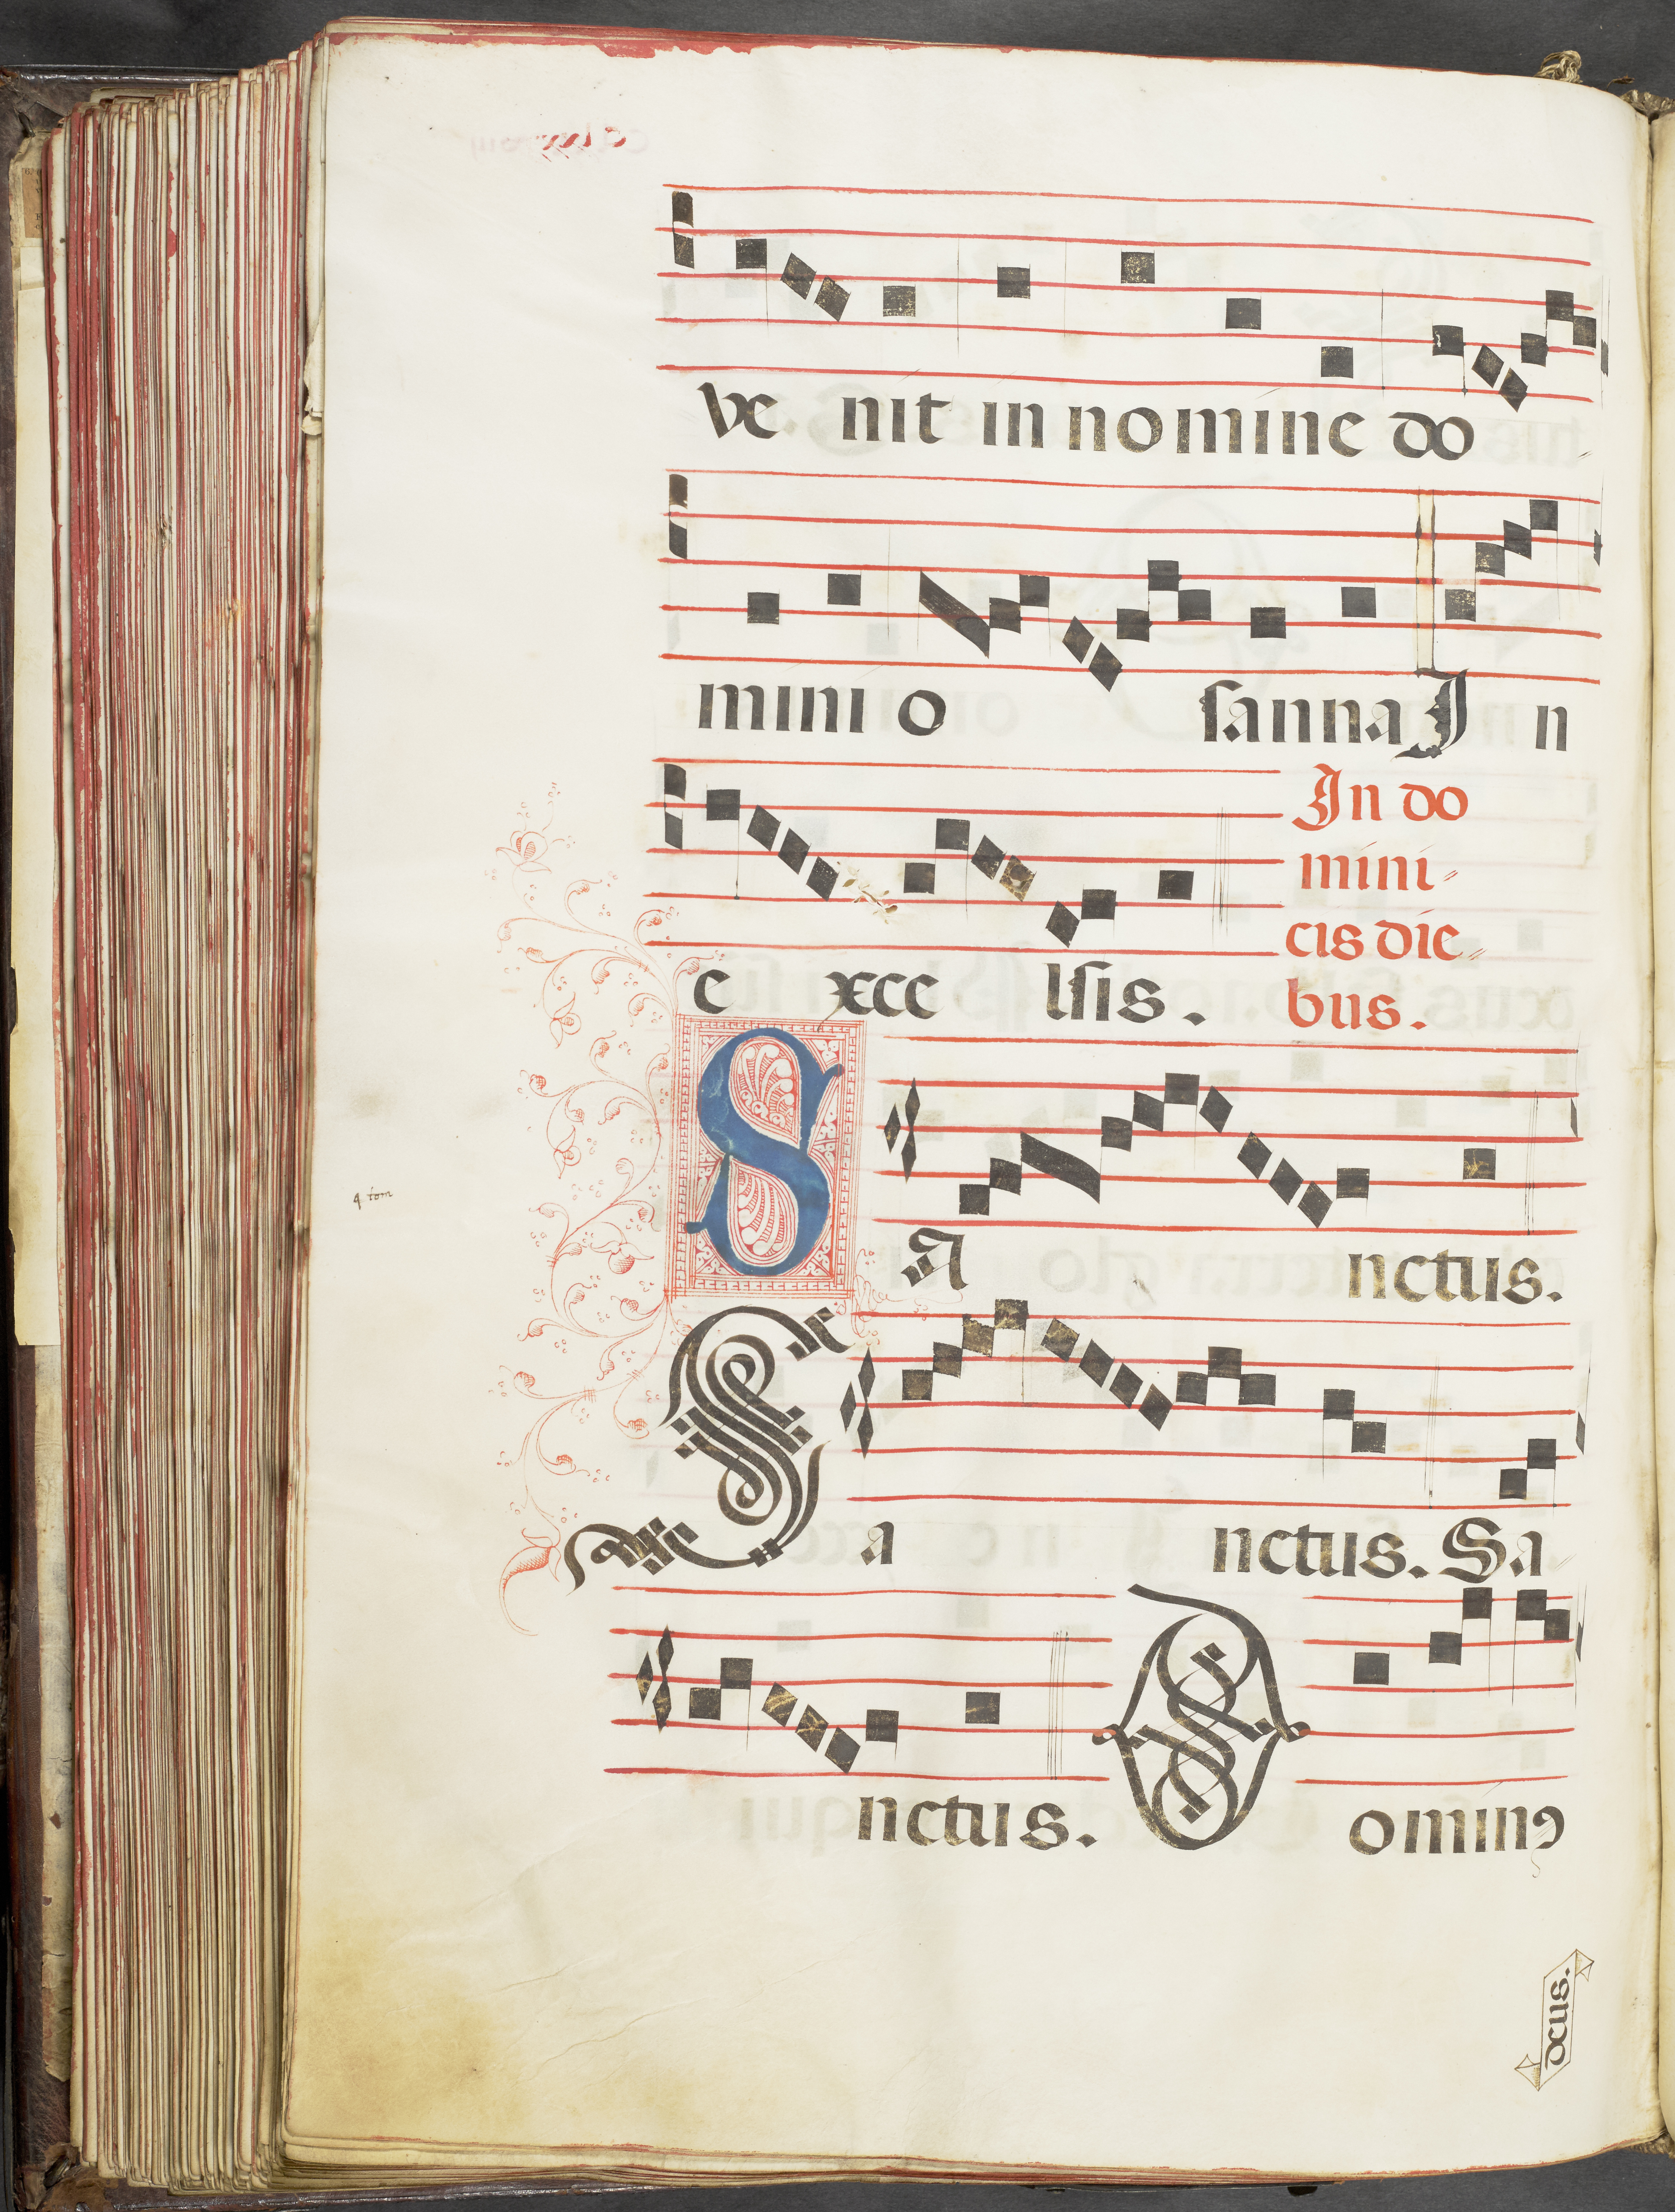 ve nit in nomine do
mini o sanna In
e xce lsis.
In do
mini-
cis die-
bus.
Sa nctus.
4 tom
Sa nctus. Sa
nctus. Dominꝰ
deus.